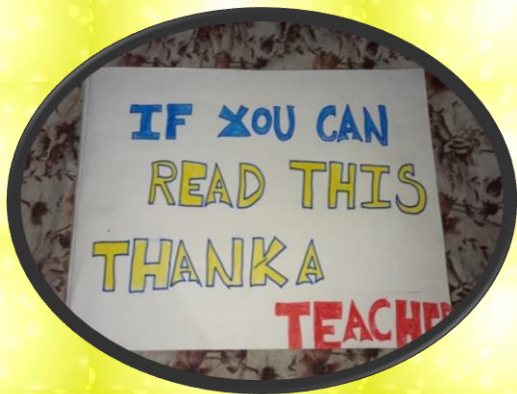 IF YOU CAN
READ THIS
THANK A
TEACHER